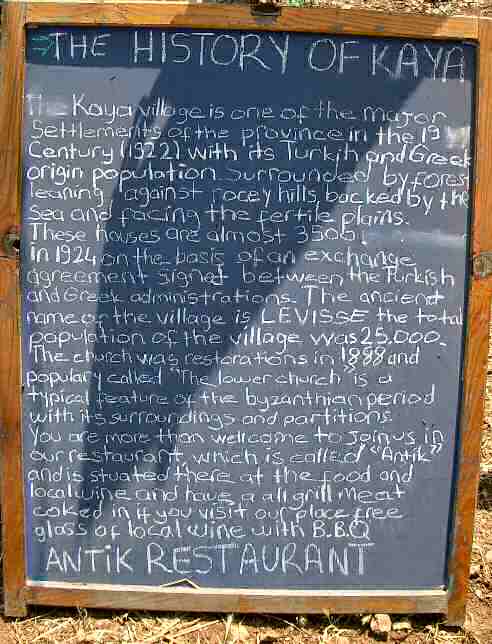 THE HISTORY OF KAYA
The Kaya village is one of the major
Settlements of the province in the 19
Century (1922) with its Turkih and Greek
origin population. Surrounded by forest
leaning, against rocey hills, backed by the
Sea and facing the fertile plains.
These houses are almost 3500!
in 1924 on the basis of an exchange
agreement signet between the Turkish
and Greek administrations. The ancient
name or the village is LEVISSE the total
population of the village was 25.000.
The church was restorations in 1888 and
populary called "The lower church" is a
typical feature of the byzanthian period
with its surroundings and partitions.
You are more than wellcome to join us in
our restaurant, which is called "Antik"
and is stuated there at the food and
local wine and have a all grill meat
coked in if you visit our place free
glass of local wine with B.B.Q
ANTiK RESTAURANT